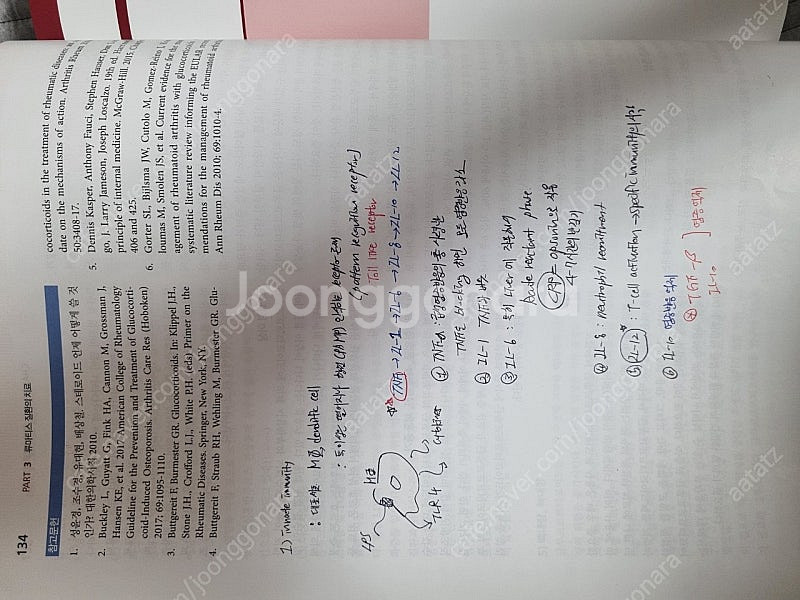 134 PART 3 류마티스 질환의 치료
참고문헌
1. 성윤경, 조수경, 유대현, 배상철. 스테로이드 언제 어떻게 쓸 것
인가? 대한의학서적 2010.
2. Buckley L, Guyatt G, Fink HA, Cannon M, Grossman J,
Hansen KE, et al. 2017 American College of Rheumatology
Guideline for the Prevention and Treatment of Glucocorti-
coid-Induced Osteoporosis. Arthritis Care Res (Hoboken)
2017; 69:1095-1110.
3. Buttgereit F, Burmester GR. Glucocorticoids. In: Klippel J.H.,
Stone J.H., Crofford L.J., White P.H. (eds) Primer on the
Rheumatic Diseases. Springer, New York, NY.
4. Buttgereit F, Straub RH, Wehling M, Burmester GR. Glu-
cocorticoids in the treatment of rheumatic diseases:
date on the mechanisms of action. Arthritis Rheum
50:3408-17.
5. Dennis Kasper, Anthony Fauci, Stephen Hauser, Dan
go, J. Larry Jameson, Joseph Loscalzo. 19th ed.
principle of internal medicine. McGraw-Hill. 2015.
406 and 425.
6. Gorter SL, Bijlsma JW, Cutolo M, Gomez-Reino J,
loumas M, Smolen JS, et al. Current evidence for the
agement of rheumatoid arthritis with glucocorticoids
systematic literature review informing the EULAR
mendations for the management of rheumatoid
Ann Rheum Dis 2010; 69:1010-4.
1) Innate immunity
: 대표세포 MΦ, dendritic cell
(pattern recognition receptor)
Toll like receptor
LPS
세균
TLR 4
TNFα → IL-1 → IL-6 → IL-8 → IL-10 → IL12
① TNFα :
② IL-1
③ IL-6 : 특히 Liver에 작용하여
Acute reactant phase
CRP = opsonin으로 작용
④ IL-8 : neutrophil recruitment
⑤ IL-12 : T-cell activation → specific immunity
⑥ IL-10 염증반응 억제
TGF-β
IL-10
염증억제
Joonggonara
joonggonara.com/joonggonara
aatatz